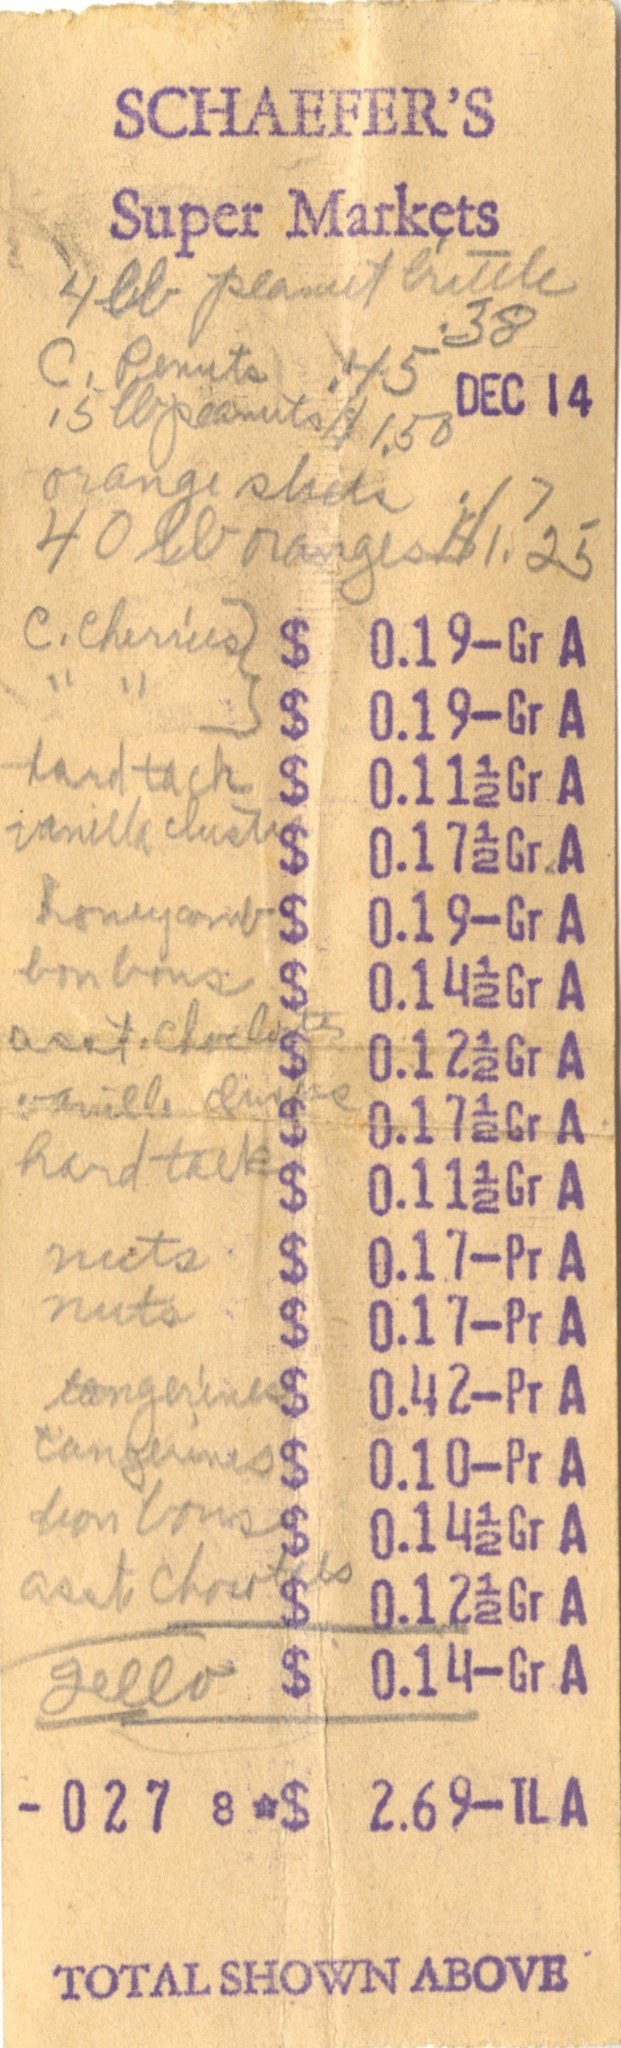 SCHAEFER'S
Super Markets
4 lb peanut brittle
.38
C. Penuts .45
DEC 14
15 lb peanuts $1.50
orange slices .17
40 lb oranges $1.25
C. Cherries } $ 0.19–Gr A
" " } $ 0.19–Gr A
hard tack $ 0.11½ Gr A
vanilla cluster $ 0.17½ Gr A
honeycomb $ 0.19–Gr A
bon bons $ 0.14½ Gr A
asst. choclates $ 0.12½ Gr A
vanilla $ 0.17½ Gr A
hard tack $ 0.11½ Gr A
nuts $ 0.17–Pr A
nuts $ 0.17–Pr A
tangerines $ 0.42–Pr A
tangerines $ 0.10–Pr A
bon bons $ 0.14½ Gr A
asst $ 0.12½ Gr A
Jello $ 0.14–Gr A
-027 8 *$ 2.69–TL A
TOTAL SHOWN ABOVE